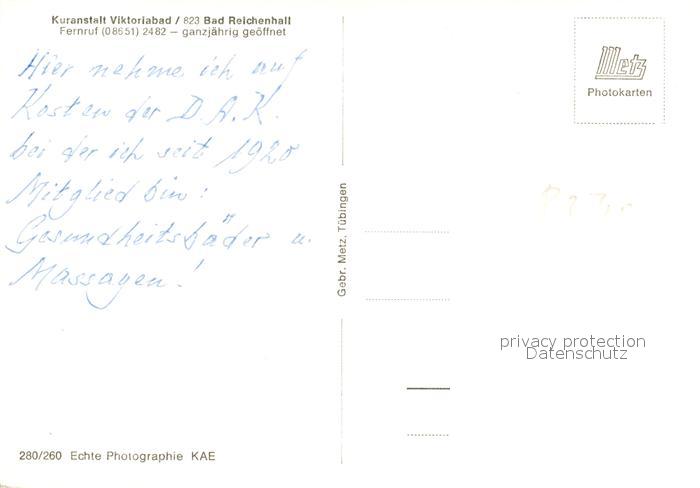 Kuranstalt Viktoriabad / 823 Bad Reichenhall
Fernruf (08651) 2482 – ganzjährig geöffnet
Hier nehme ich auf
Kosten der D.A.K.
bei der ich seit 1920
Mitglied bin:
Gesundheitsbäder u.
Massagen!
280/260 Echte Photographie KAE
Gebr. Metz, Tübingen
Metz
Photokarten
privacy protection
Datenschutz